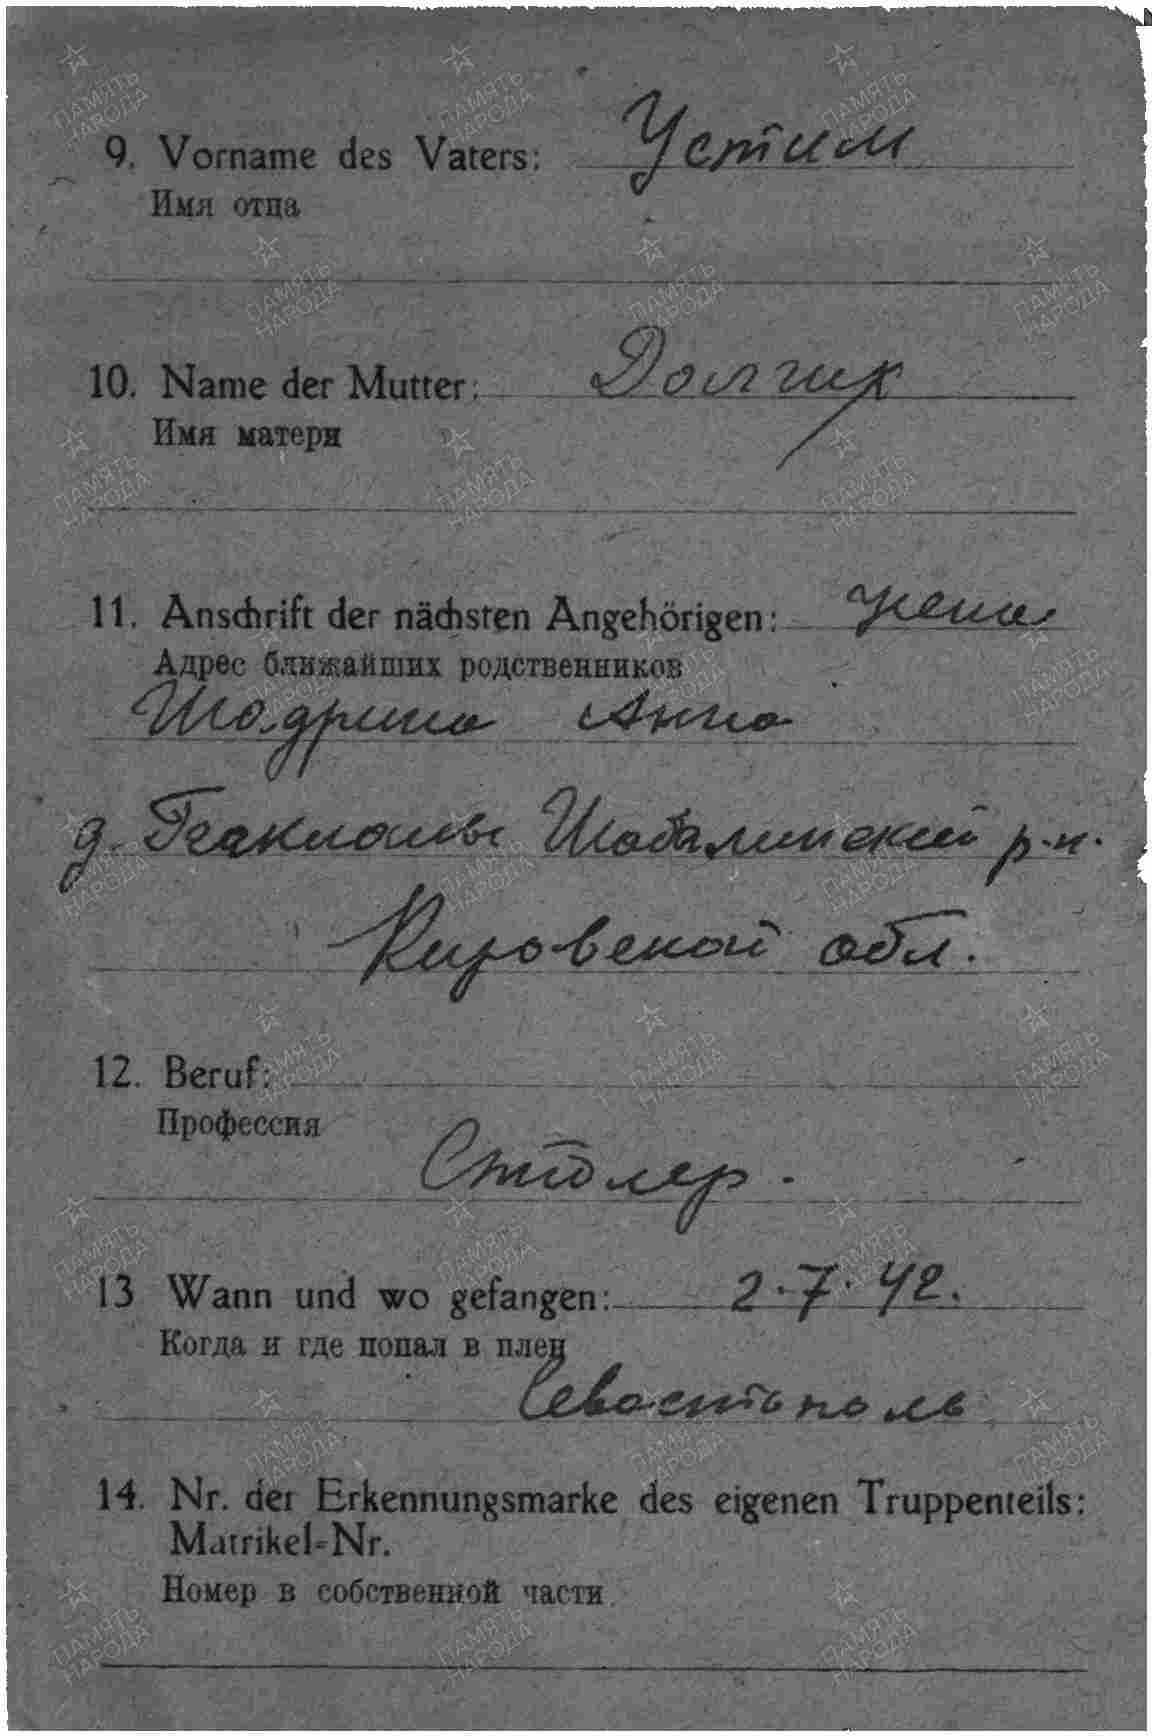 9. Vorname des Vaters: Устим
Имя отца
10. Name der Mutter: Долгих
Имя матери
11. Anschrift der nächsten Angehörigen: жена
Адрес ближайших родственников
Шадрина Анна
д. Шабалинский р-н.
Кировской обл.
12. Beruf:
Профессия
Столер.
13 Wann und wo gefangen: 2.7.42.
Когда и где попал в плен
Севастополь
14. Nr. der Erkennungsmarke des eigenen Truppenteils:
Matrikel-Nr.
Номер в собственной части